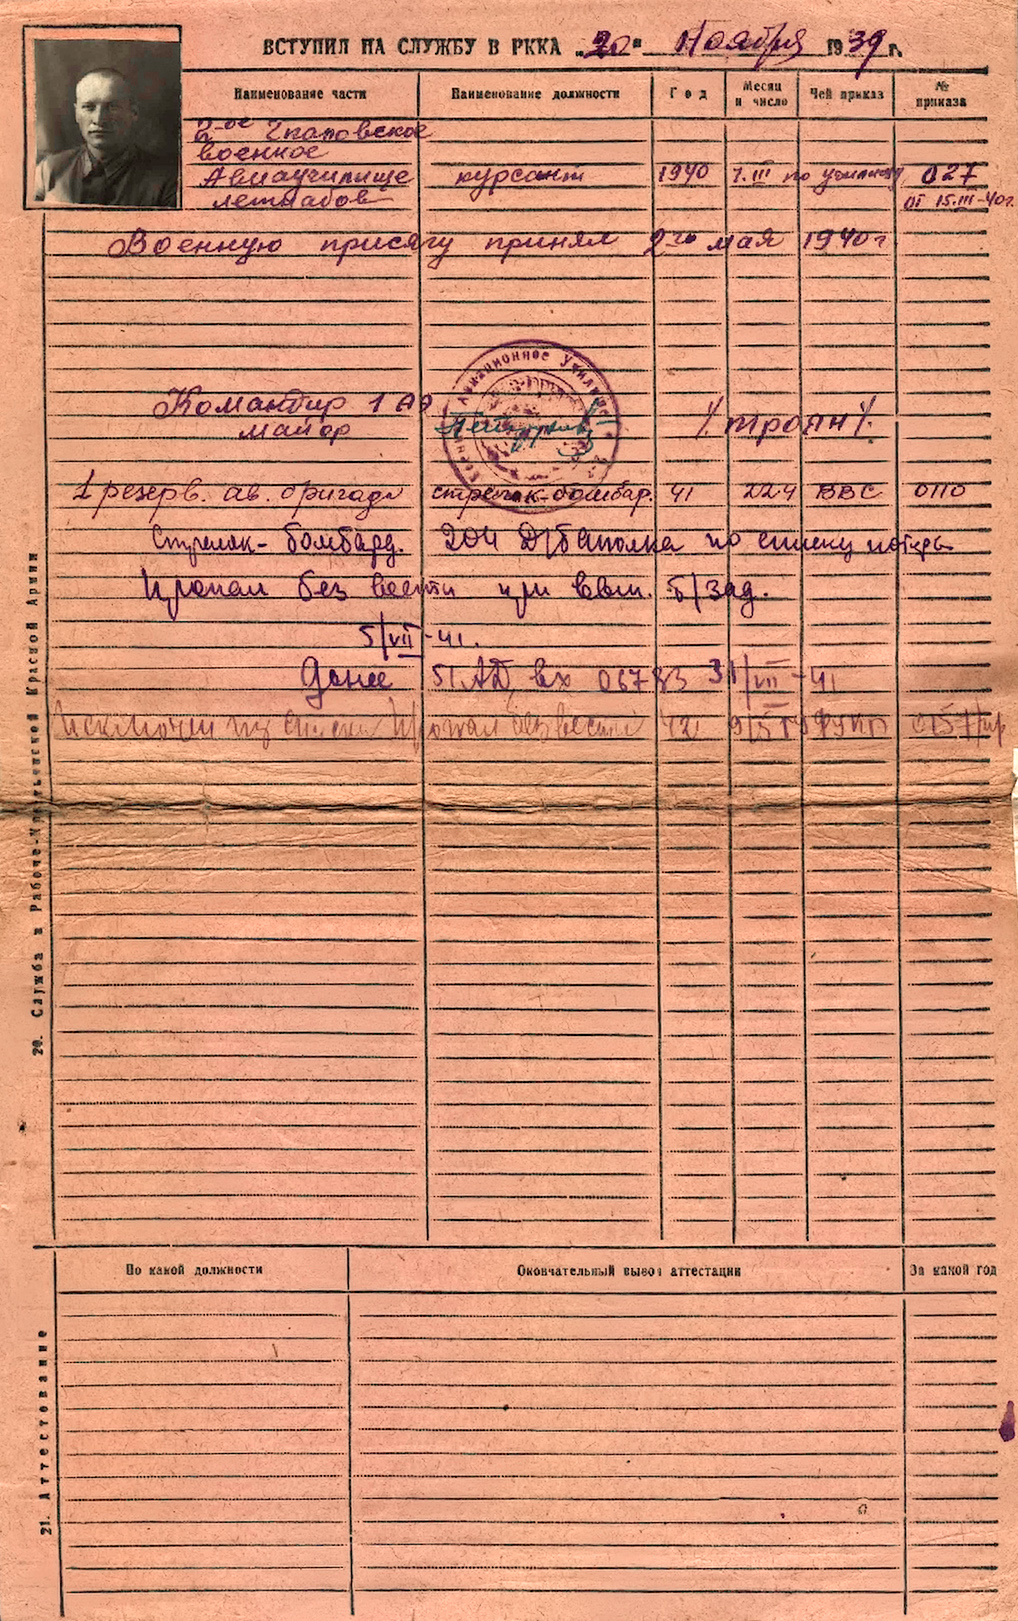 ВСТУПИЛ НА СЛУЖБУ В РККА „20“ Ноября 1939 г.
Наименование части Наименование должности Год Месяц и число Чей приказ № приказа
2-ое Чкаловское
военное
Авиаучилище курсант 1940 7.III по училищу 027
летнабов от 15.III-40г.
Военную присягу принял 2го мая 1940г.
Авиационное Училище
Командир 1 АЭ
майор /Троян/
1 резерв. ав. бригада стрелок-бомбар. 41 22.4 ВВС 0110
Стрелок-бомбард. 204 Д/Баполка по списку потерь
Пропал без вести при вып. б/зад.
5/VII-41.
Донес 51 АД, вх 06783 31/VII-41
Исключен из списка Пропал без вести 42 9/5 ГУФКП 0157/пр
20. Служба в Рабоче-Крестьянской Красной Армии
По какой должности Окончательный вывод аттестации За какой год
21. Аттестование